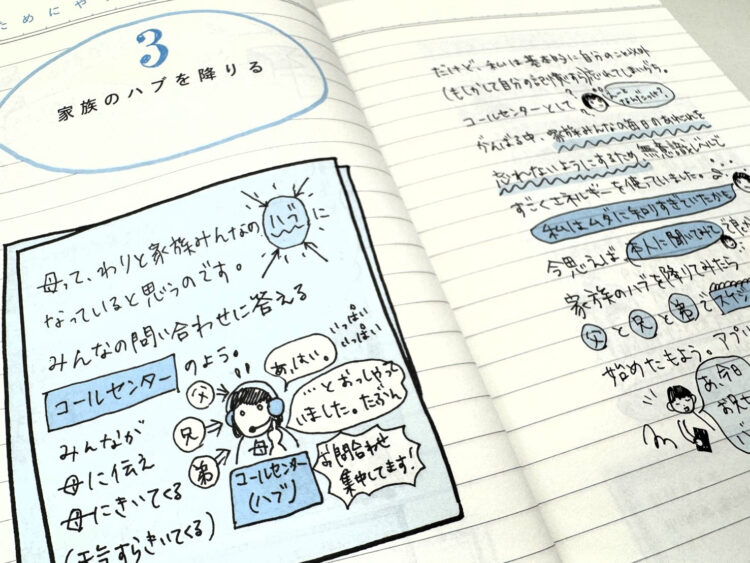 ためにや
3
家族のハブを降りる
母って、わりと家族みんなの ハブ に
なっていると思うのです。
みんなの問い合わせに答える
コールセンター のよう。
みんなが
母に伝え
母にきいてくる
(天気すらきいてくる)
父
兄
弟
母
コールセンター
(ハブ)
あっはい。
いっぱい
いっぱい
とおっしゃって
いました。たぶん
お問合わせ
集中してます!
だけど、私は基本的に自分のこと以外
(もしかして自分の記憶すら)忘れてしまいがち。
コールセンターとして
がんばる中、家族みんなの毎日のあれこれを
忘れないようにするため 無意識レベルで
すごくエネルギーを使っていました。
私はムダに知りすぎていたかも
今思えば、本人に聞いてみて
家族のハブを降りてみたら
父 と 兄 と 弟 で
始めたもよう。アプ
あ、今日
お兄